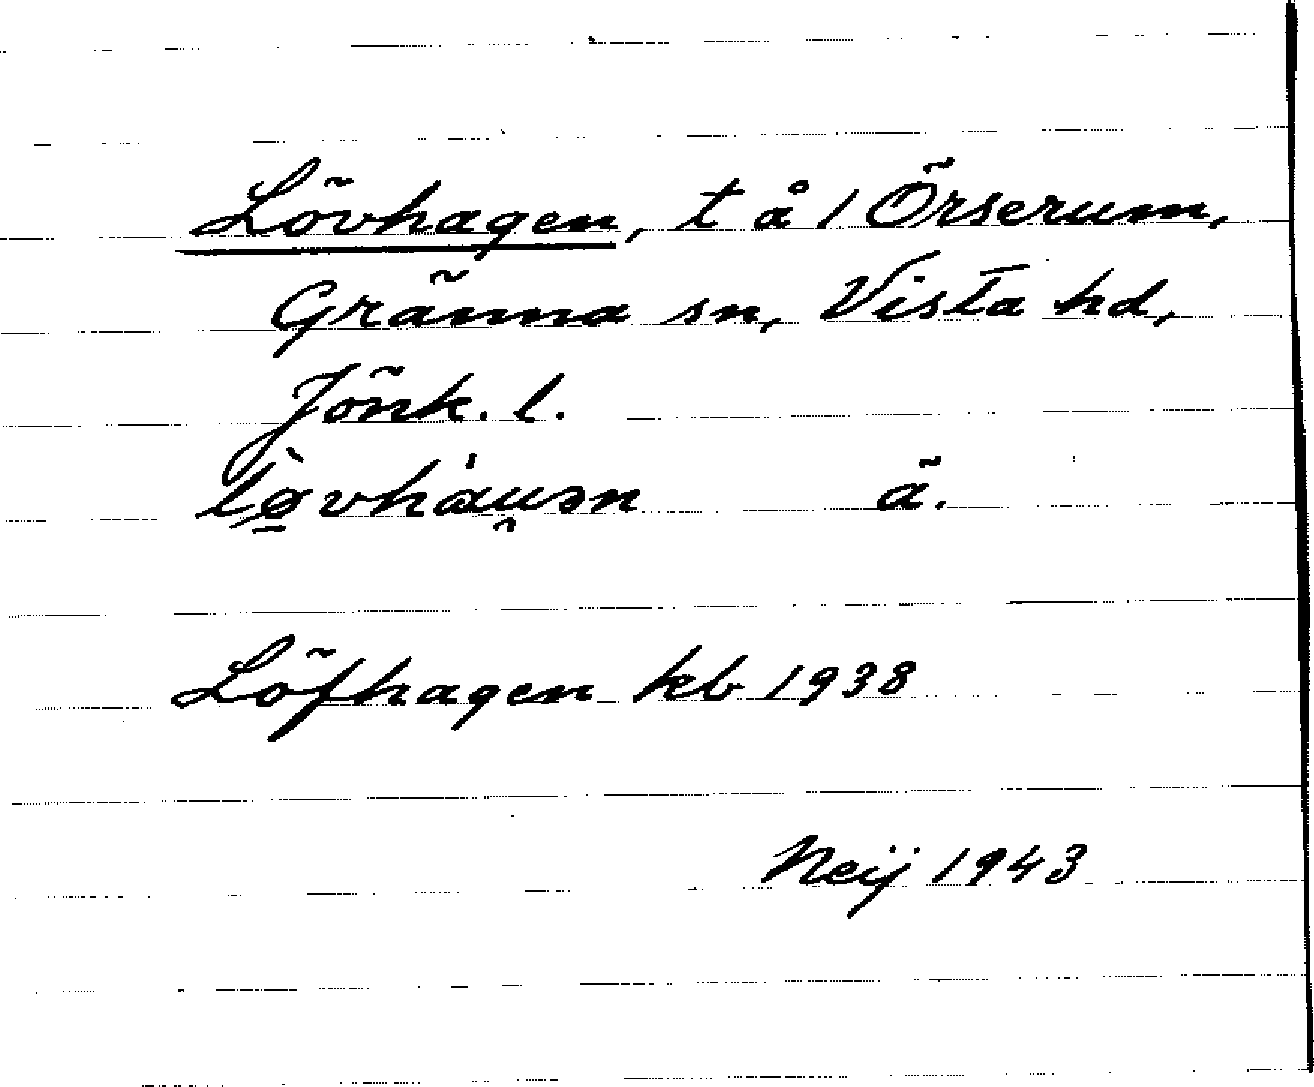 Lövhagen, t å 1 Örserum,
Gränna sn, Vista hd,
Jönk. l.
ä.
Löfhagen kb 1938
Neij 1943